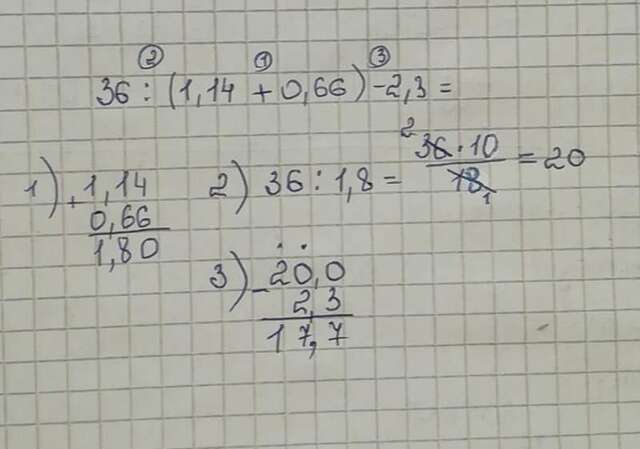 ② ① ③
36 : (1,14 + 0,66) - 2,3 =
1) + 1,14
0,66
1,80
2) 36 : 1,8 = 2 36 · 10 / 18 1 = 20
3) - 20,0
2,3
17,7